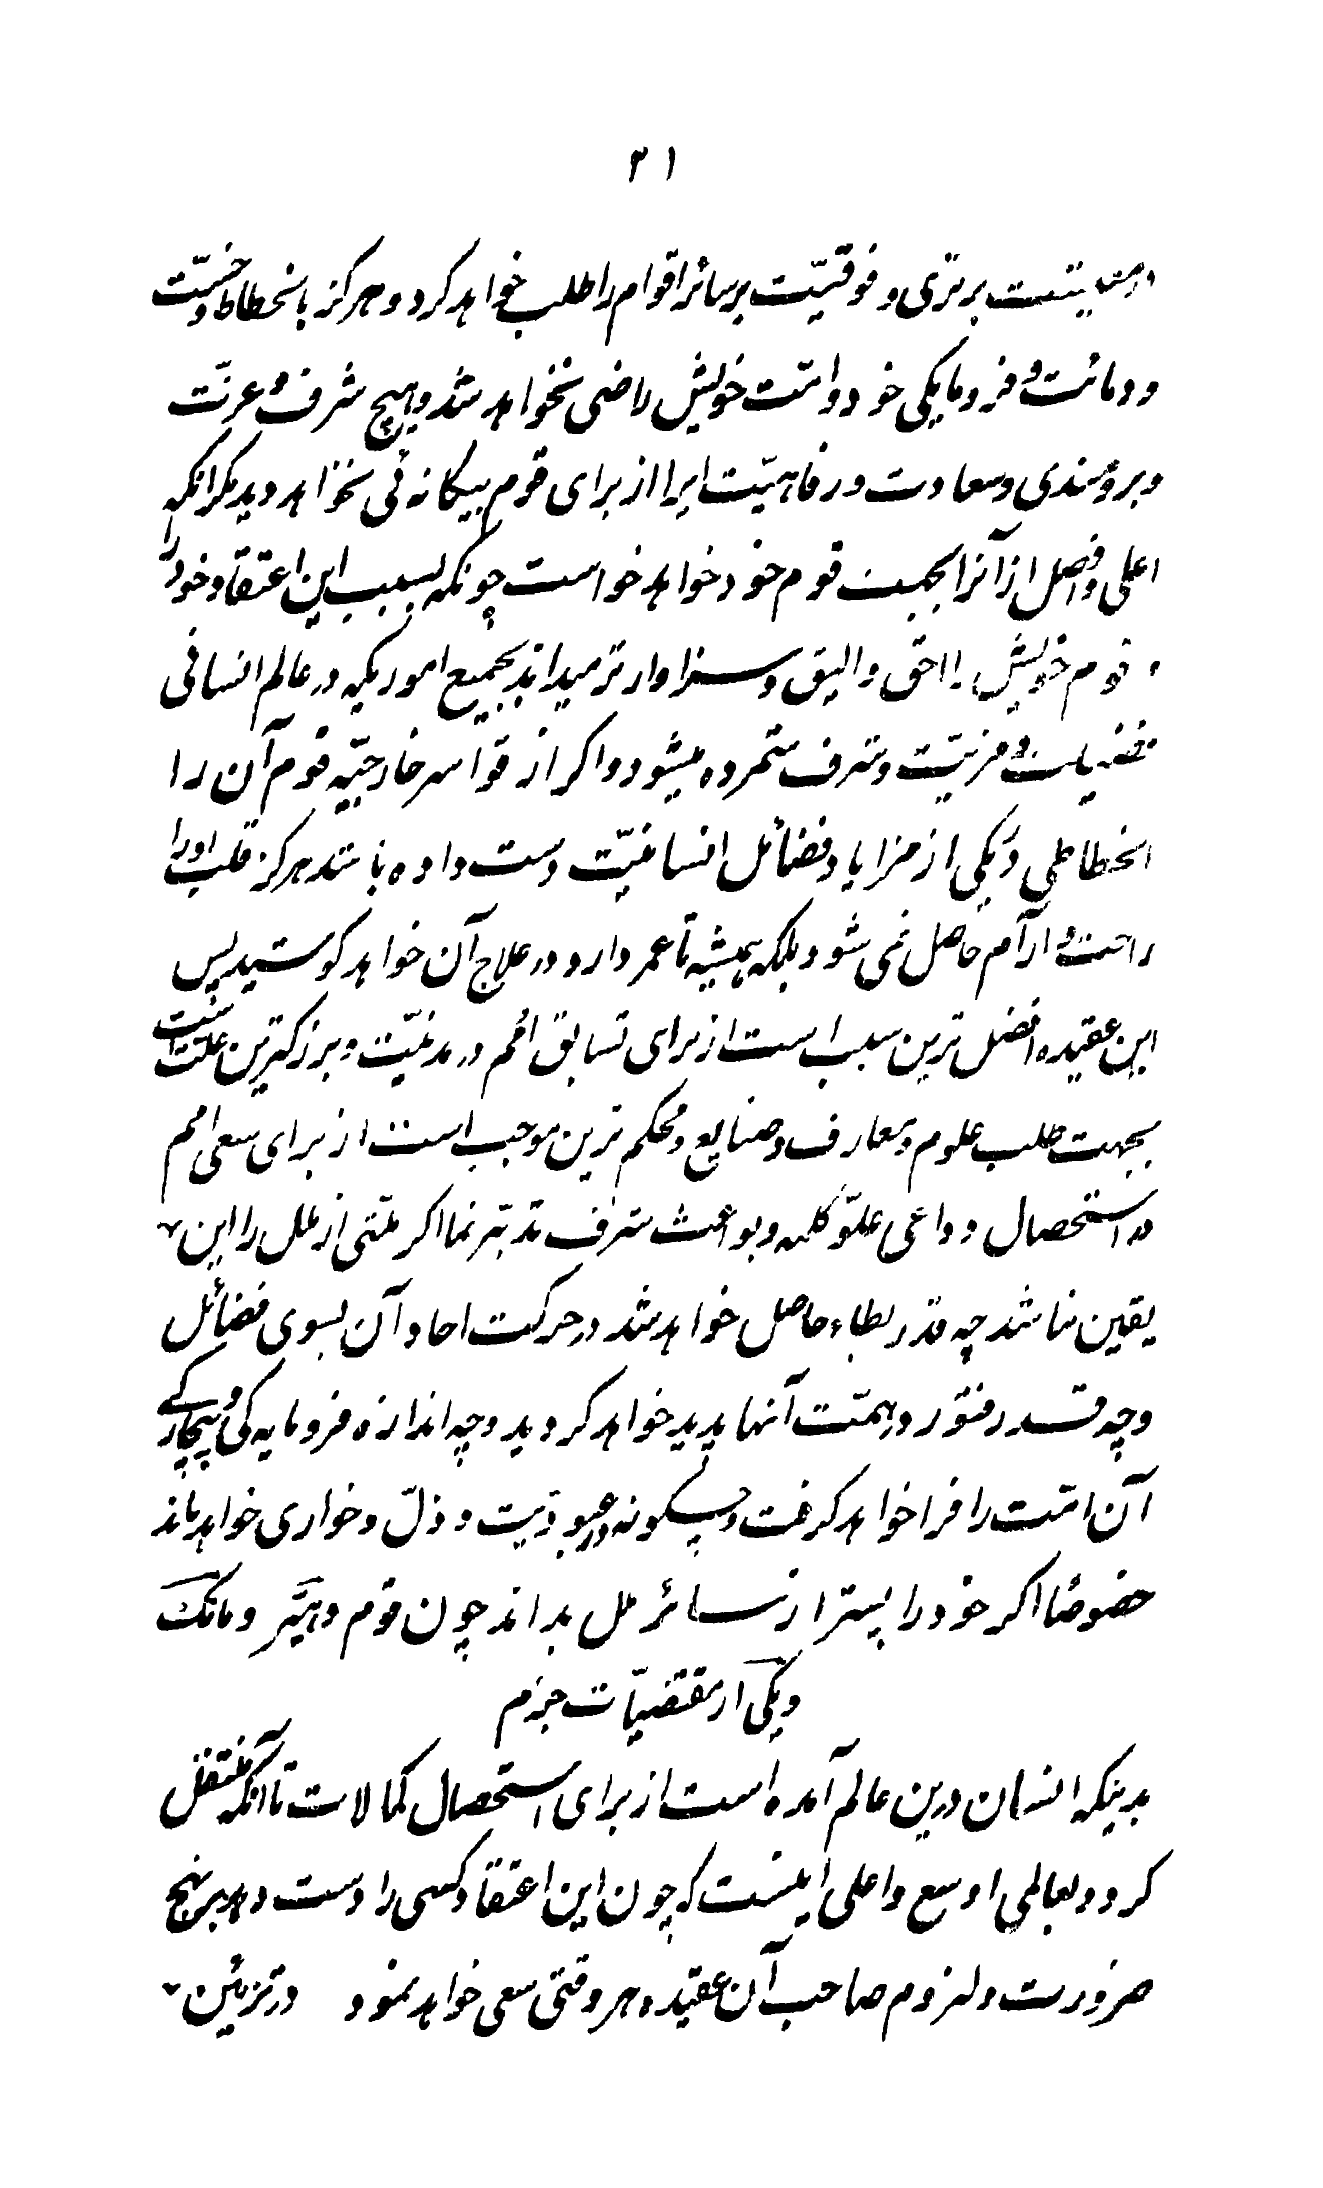 ۳۱
برتری و فوقیّت بر سائر اقوام را طلب خواهد کرد و هرگز بانحطاط و خسّت
و دنائت و فرومایگی خود و امّت خویش راضی نخواهد شد و هیچ شرف و عزّت
و برومندی و سعادت و رفاهیّت ایرا از برای قوم بیگانه ئی نخواهد دید مگر انکه
اعلی و افضل از آنرا بجهت قوم خود خواهد خواست چونکه بسبب این اعتقاد خود را
و قوم خویش را احق و الیق و سزاوارتر میداند بجمیع اموریکه در عالم انسانی
فضیلت و مزیّت و شرف شمرده میشود و اگر از قواسر خارجیّه قوم آن را
انحطاطی در یکی از مزایا و فضائل انسانیّت دست داده باشد هرگز قلب او را
راحت و ارآم حاصل نمی شود بلکه همیشه تا عمر دارد در علاج آن خواهد کوشید پس
این عقیده افضل ترین سبب است از برای تسابق اُمم در مدنیّت و بزرگترین علّت است
بجهت طلب علوم و معارف و صنایع و محکم ترین موجب است از برای سعی امم
در استحصال دواعی علوّ کلمه و بواعث شرف تدبّر نما اگر ملّتی از ملل را این
یقین نباشد چه قدر بطاء حاصل خواهد شد در حرکت احاد آن بسوی فضائل
و چه قدر فتور در همّت آنها پدید خواهد گردید و چه اندازه فرومایه گی و بیچارگی
آن امّت را فرا خواهد گرفت و چگونه در عبودیّت و ذلّ و خواری خواهد ماند
خصوصًا اگر خود را پستر از سائر ملل بداند چون قوم دهیَّر و مانگ
و یکی از مقتضیّات جزم
بدینکه انسان درین عالم آمده است از برای استحصال کمالات تا آنکه منتقل
گردد بعالمی اوسع و اعلی اینست که چون این اعتقاد کسی را دست دهد بر نهج
ضرورت و لزوم صاحب آن عقیده هر وقتی سعی خواهد نمود در تزئین